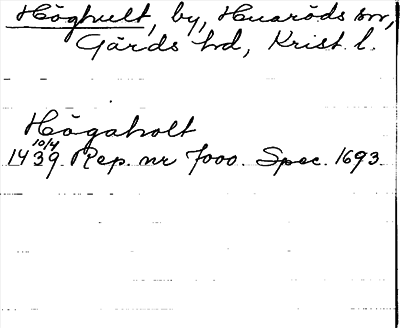 Höghult, by, Huaröds sn,
Gärds hd, Krist. l.
Högaholt
10/4
1439. Rep. nr 7000. Spec. 1693.